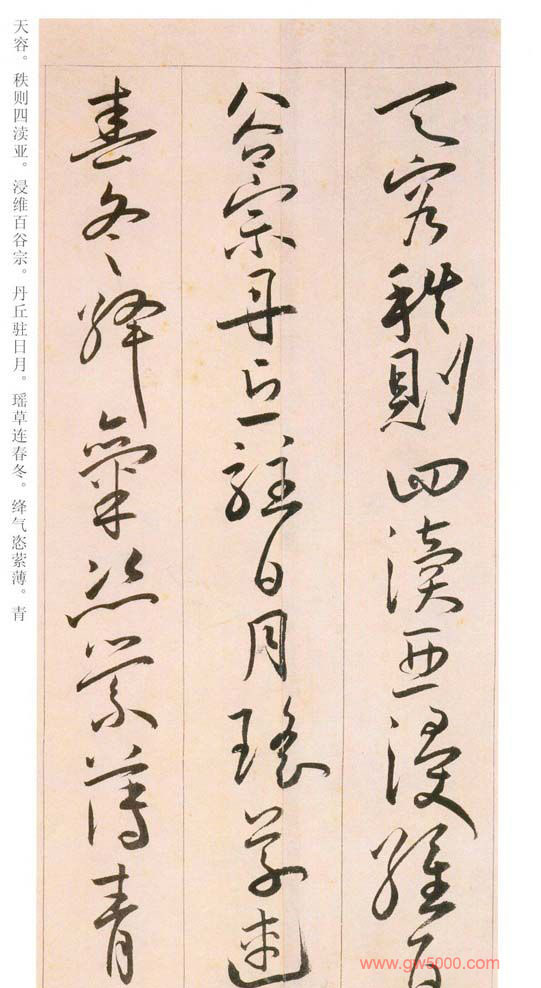 天容秩則四瀆亞浸維百
谷宗丹丘駐日月瑤草連
春冬絳氣恣縈薄青
天容。秩则四渎亚。浸维百谷宗。丹丘驻日月。瑶草连春冬。绛气恣萦薄。青
www.gw5000.com